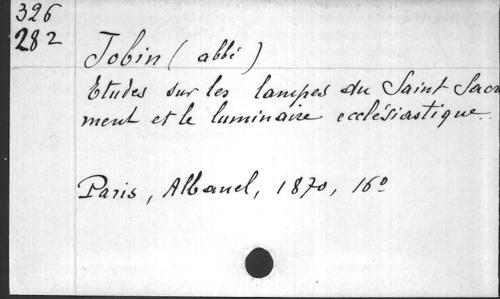 326
282
Tobin (abbé)
Etudes sur les lampes du Saint Sacre
ment et le luminaire ecclésiastique.
Paris, Albanel, 1870, 16º